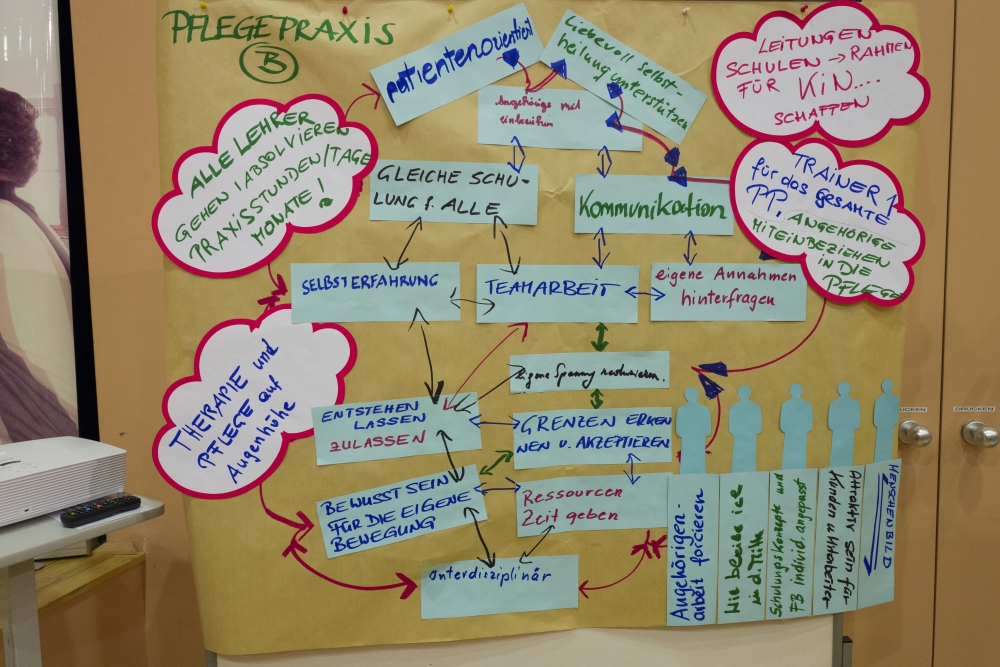 PFLEGEPRAXIS
B
patientenorientiert
Liebevoll selbst-
heilung unterstützen
Angehörige mit
einbeziehen
LEITUNGEN
SCHULEN → RAHMEN
FÜR KIN...
SCHAFFEN
ALLE LEHRER
GEHEN 1 ABSOLVIEREN
PRAXISSTUNDEN/TAGE
MONATE!
GLEICHE SCHU-
LUNG F. ALLE
Kommunikation
TRAINER 1
für das gesamte
PP, ANGEHÖRIGE
MITEINBEZIEHEN
IN DIE
PFLEGE
SELBSTERFAHRUNG
TEAMARBEIT
eigene Annahmen
hinterfragen
THERAPIE und
PFLEGE auf
Augenhöhe
Eigene Spannung reduzieren.
ENTSTEHEN
LASSEN
ZULASSEN
GRENZEN ERKEN
NEN U. AKZEPTIEREN
BEWUSST SEIN
FÜR DIE EIGENE
BEWEGUNG
Ressourcen
Zeit geben
Interdisziplinär
Angehörigen-
arbeit forcieren
Wie bewege ich
Schulungskonzepte und
FB individ. angepasst
Attraktiv sein für
Kunden u. Mitarbeiter
MENSCHENBILD
DRÜCKEN
DRÜCKEN